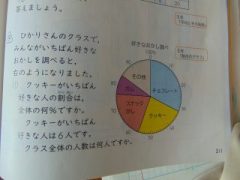 答えましょう。
ひかりさんのクラスで、
みんながいちばん好きな
おかしを調べると、
右のようになりました。
クッキーがいちばん
好きな人の割合は、
全体の何%ですか。
クッキーがいちばん
好きな人は6人です。
クラス全体の人数は何人ですか。
好きなおかし調べ
その他
チョコレート
ガム
スナックがし
クッキー